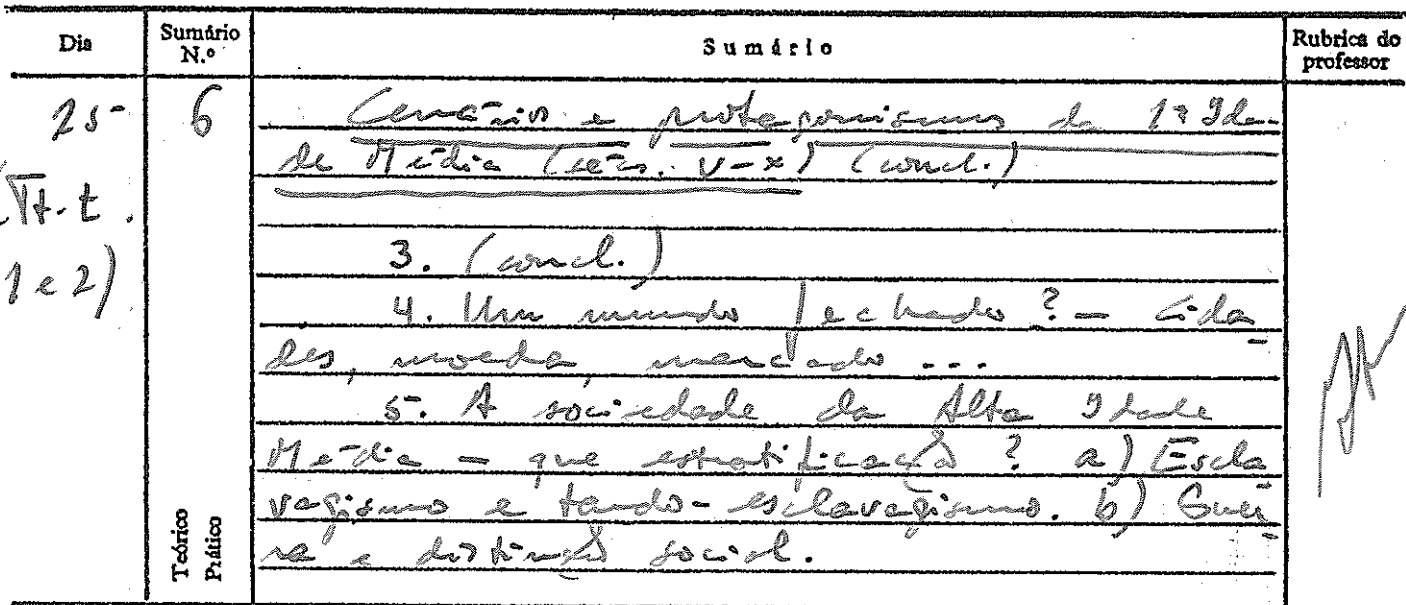 Dia Sumário N.º Sumário Rubrica do professor
25 6 Cenários e protagonismos da 1ª Ida-
de Média (sécs. V-X) (concl.)
t.
1 e 2)
3. (concl.)
4. Um mundo fechado? - Cida-
des, moeda, mercado ...
5. A sociedade da Alta Idade
Média - que estratificação? a) Escla-
vagismo e tardo-esclavagismo. b) Guer-
ra e distinção social.
Teórico
Prático